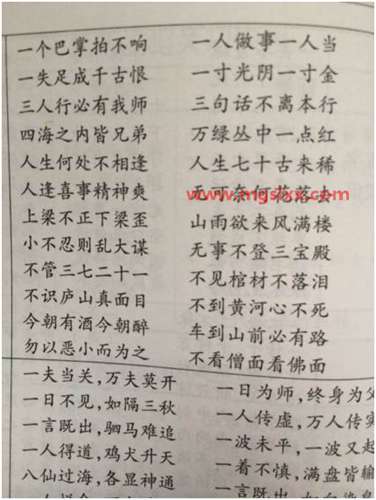 一个巴掌拍不响
一失足成千古恨
三人行必有我师
四海之内皆兄弟
人生何处不相逢
人逢喜事精神爽
上梁不正下梁歪
小不忍则乱大谋
不管三七二十一
不识庐山真面目
今朝有酒今朝醉
勿以恶小而为之
一人做事一人当
一寸光阴一寸金
三句话不离本行
万绿丛中一点红
人生七十古来稀
无可奈何花落去
山雨欲来风满楼
无事不登三宝殿
不见棺材不落泪
不到黄河心不死
车到山前必有路
不看僧面看佛面
一夫当关，万夫莫开
一日不见，如隔三秋
一言既出，驷马难追
一人得道，鸡犬升天
八仙过海，各显神通
一日为师，终身为父
一人传虚，万人传实
一波未平，一波又起
一着不慎，满盘皆输